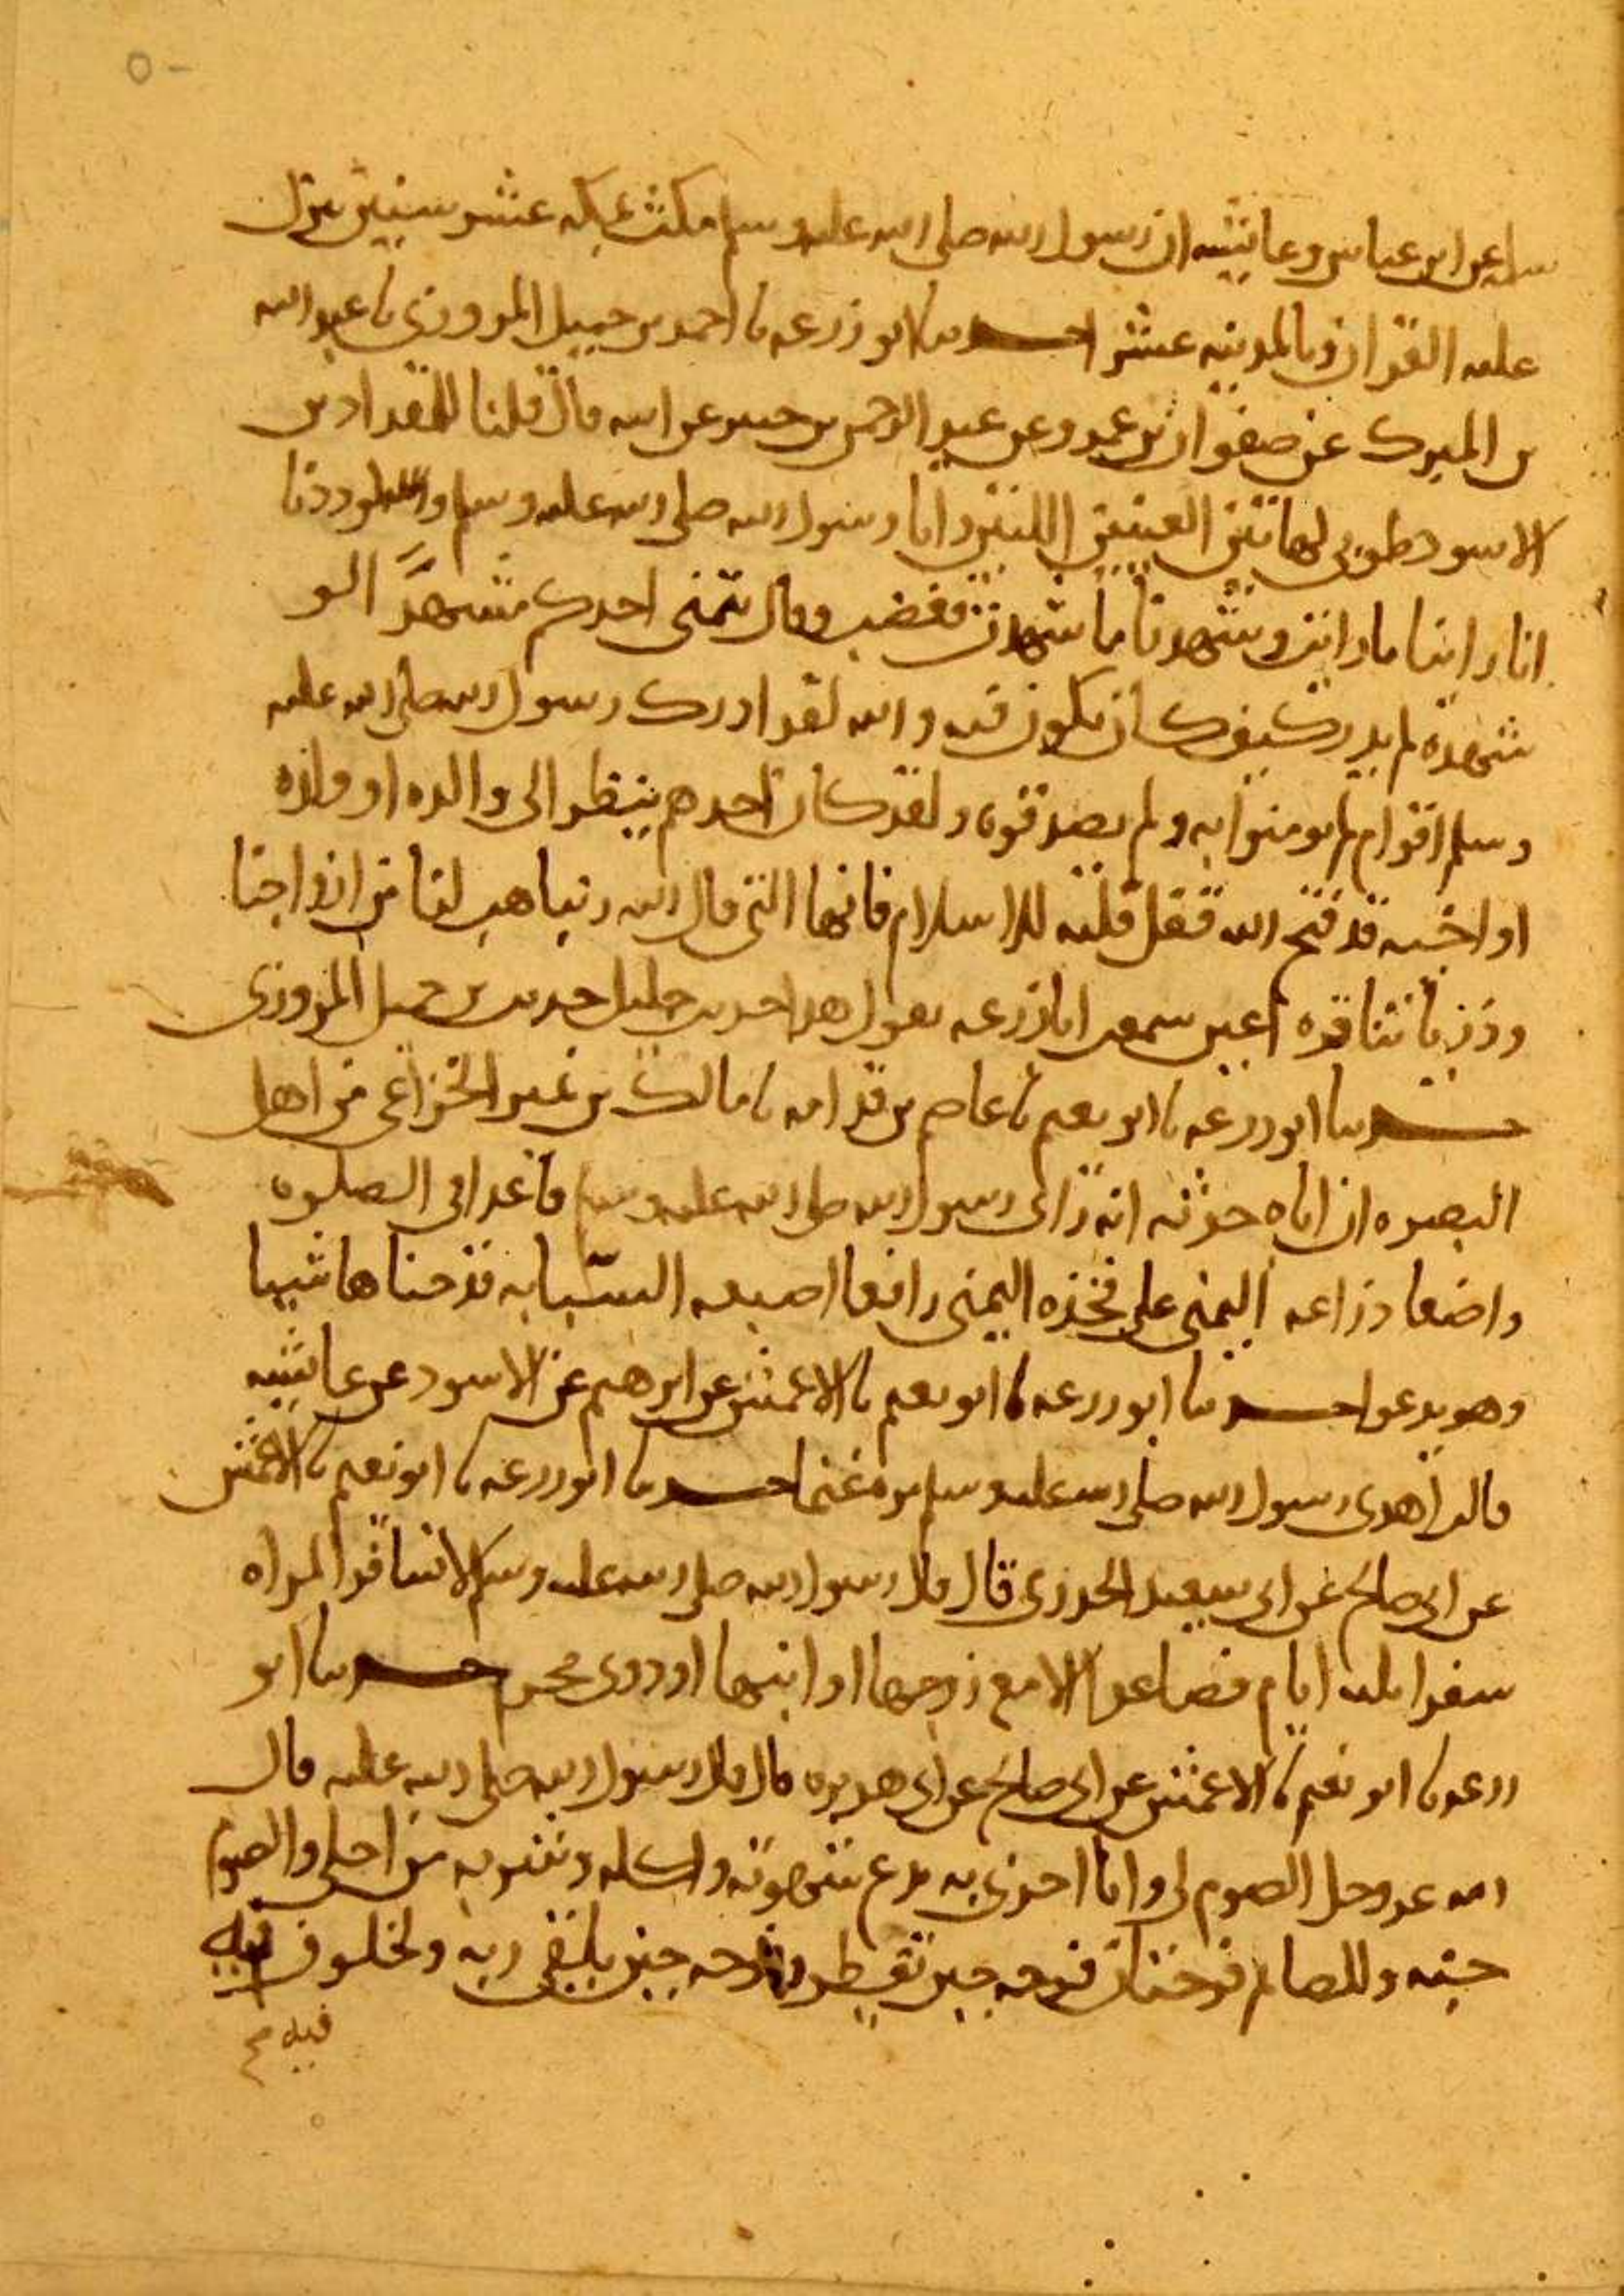 سلمه عن ابن عباس وعائشه ان رسول الله صلى الله عليه وسلم مكث بمكه عشر سنين ينزل
عليه القران وبالمدينه عشرا حدثنا ابو زرعه نا احمد بن جميل المروزي نا عبد الله
بن المبرك عن صفوان بن عمرو عن عبد الرحمن بن جبير عن ابيه قال قلنا للمقداد بن
الاسود طوبى لهاتين العينين اللتين راتا رسول الله صلى الله عليه وسلم والله لوددنا
انا راينا ما رايت وشهدنا ما شهدت فغضب وقال يتمنى احدكم مشهدا لو
شهده لم يدر كيف كان يكون فيه والله لقد ادرك رسول الله صلى الله عليه
وسلم اقوام لم يومنوا به ولم يصدقوه ولقد كان احدهم ينظر الى والده او ولده
او اخيه قد فتح الله قفل قلبه للاسلام فانها التي قال الله ربنا هب لنا من ازواجنا
وذرياتنا قره اعين سمعت ابا زرعه يقول هذا حديث جليل حديث بن جميل المروزي
حدثنا ابو زرعه نا ابو نعيم نا عاصم بن قدامه نا مالك بن نمير الخزاعي من اهل
البصره ان اباه حدثه انه راى رسول الله صلى الله عليه وسلم قاعدا في الصلوه
واضعا ذراعه اليمنى على فخذه اليمنى رافعا اصبعه السبابه قد حناها شيا
وهو يدعوا حدثنا ابو زرعه نا ابو نعيم نا الاعمش عن ابرهيم عن الاسود عن عائشه
قالت اهدى رسول الله صلى الله عليه وسلم مره غنما حدثنا ابو زرعه نا ابو نعيم نا الاعمش
عن ابي صالح عن ابي سعيد الخدري قال قال رسول الله صلى الله عليه وسلم لا تسافر المراه
سفرا ثلثه ايام فصاعدا الا مع زوجها او ابنها او ذوي محرم حدثنا ابو
زرعه نا ابو نعيم نا الاعمش عن ابي صالح عن ابي هريره قال قال رسول الله صلى الله عليه قال
الله عز وجل الصوم لي وانا اجزي به يدع شهوته واكله وشربه من اجلي والصوم
جنه وللصائم فرحتان فرحه حين يفطر وفرحه حين يلقى ربه ولخلوف فيه
فيه صح